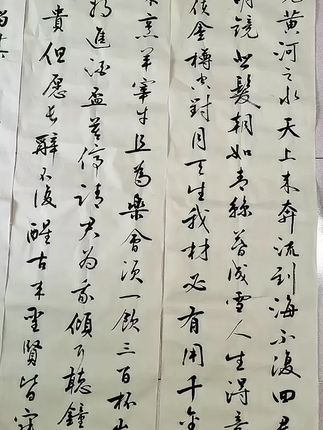 黄河之水天上来奔流到海不復回君
明鏡悲髮朝如青絲暮成雪人生得意
金樽空對月天生我材必有用千金
烹羊宰牛且為樂會須一飲三百杯
進酒盃莫停請君為我傾耳聽鐘
貴但愿长醉不復醒古来聖賢皆寂